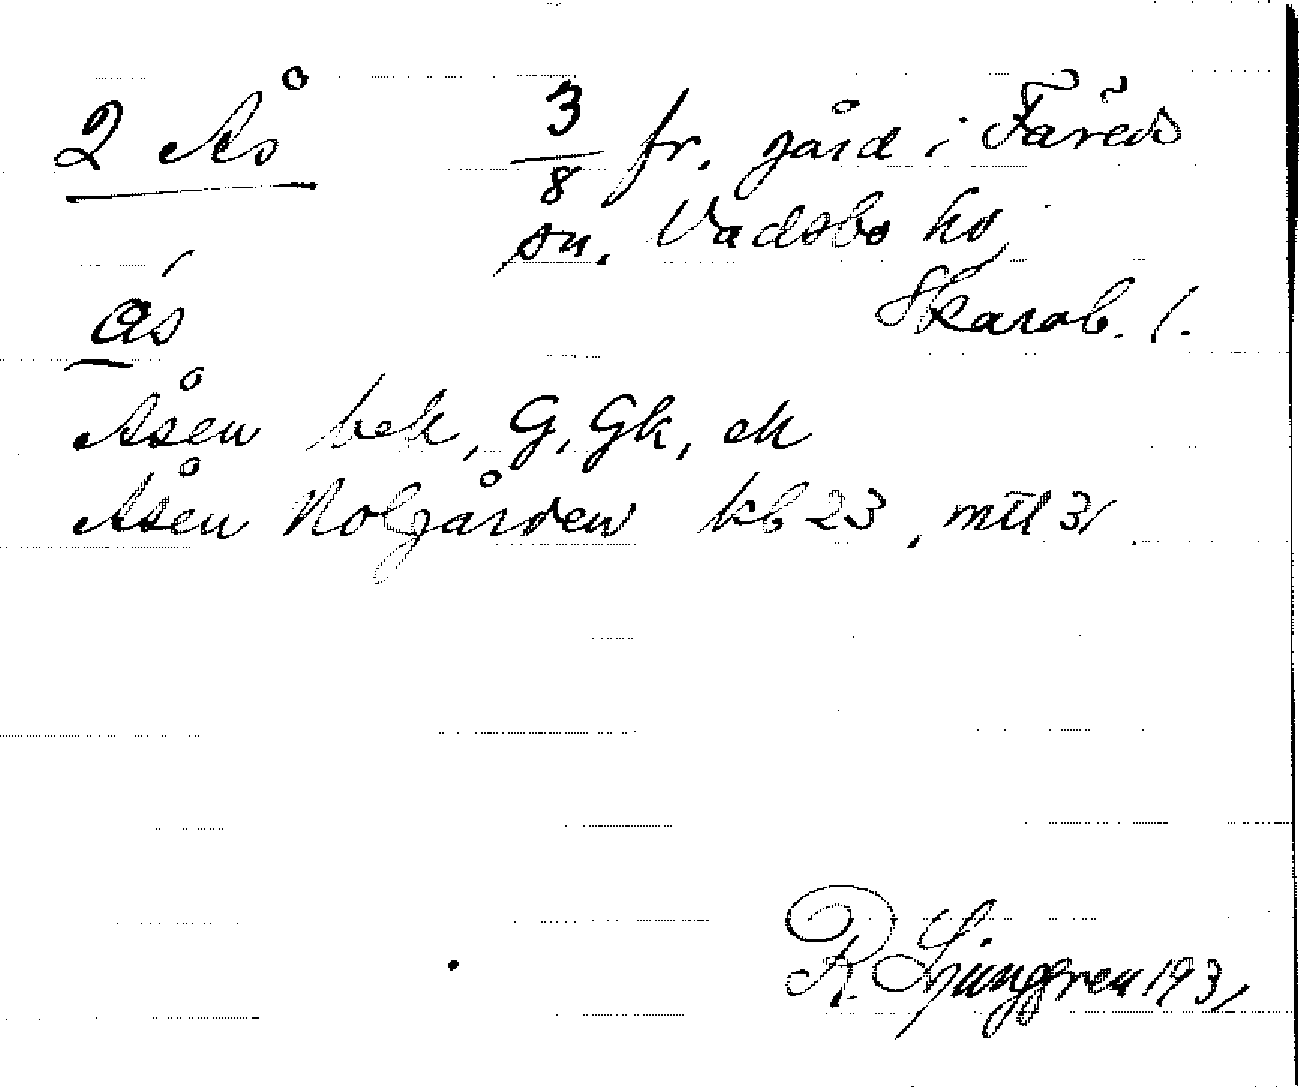 2 Ås 3/8 fr. gård i Färeds
sn. Vadsbo hd
Skarab. l.
ás
Åsen bek, G, Gk, ek
Åsen Nolgården kb 23, mtl 31
R. Ljunggren 1931